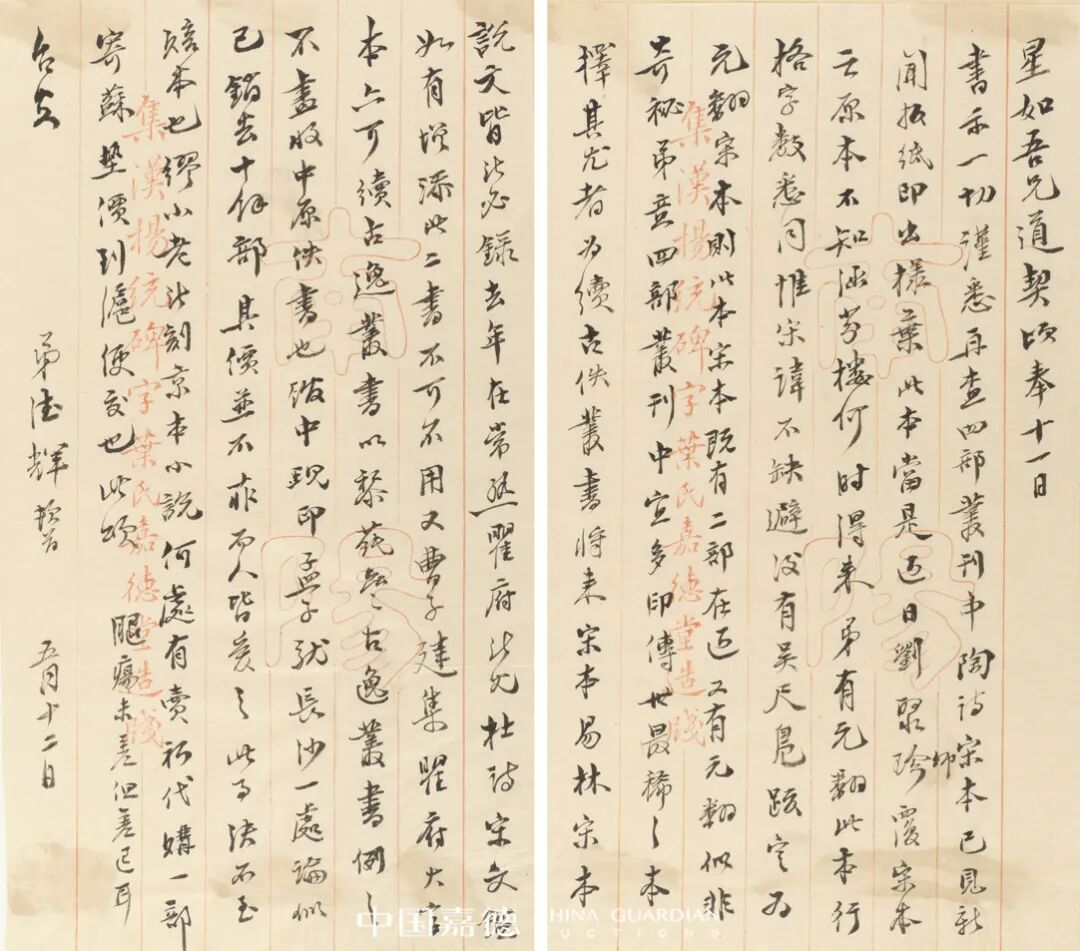 星如吾兄道契頃奉十一日
書示一切謹悉再查四部叢刊中陶詩宋本已見新
聞報紙即出樣葉此本當是近日劉聚珍師覆宋本
云原本不知涵芬樓何時得來弟有元翻此本行
格字數悉同惟宋諱不缺避後有吳尺鳧跋定為
元翻宋本則此本宋本既有二部在近又有元翻似非
奇秘弟意四部叢刊中宜多印傳世最稀之本
擇其尤者為續古佚叢書將來宋本易林宋本
說文皆必錄去年在常熟瞿府所見杜詩宋文鑑
如有增添此二書不可不用又曹子建集瞿府大字
本亦可續古逸叢書以黎蒓老古逸叢書例之
不盡收中原佚書也綴中現印孟子就長沙一處論似
已銷去十餘部具價並不昂而人皆美之此事決不至
賠本也繆小老所刻京本小說何處有賣祈代購一部
寄蘇墊價到滬便交也此頌
台安
腿瘍未差但差已耳
弟德輝
五月十二日
集漢楊統碑字葉氏嘉德堂造牋
集漢楊統碑字葉氏嘉德堂造牋
中国嘉德
CHINA GUARDIAN
AUCTIONS